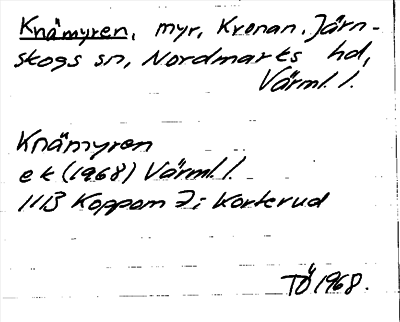 Knämyren, myr, Kronan, Järn-
skogs sn, Nordmarks hd,
Värml. l.
Knämyren
ek (1968) Värml. l.
11B Koppom 7i Korterud
TÖ 1968.